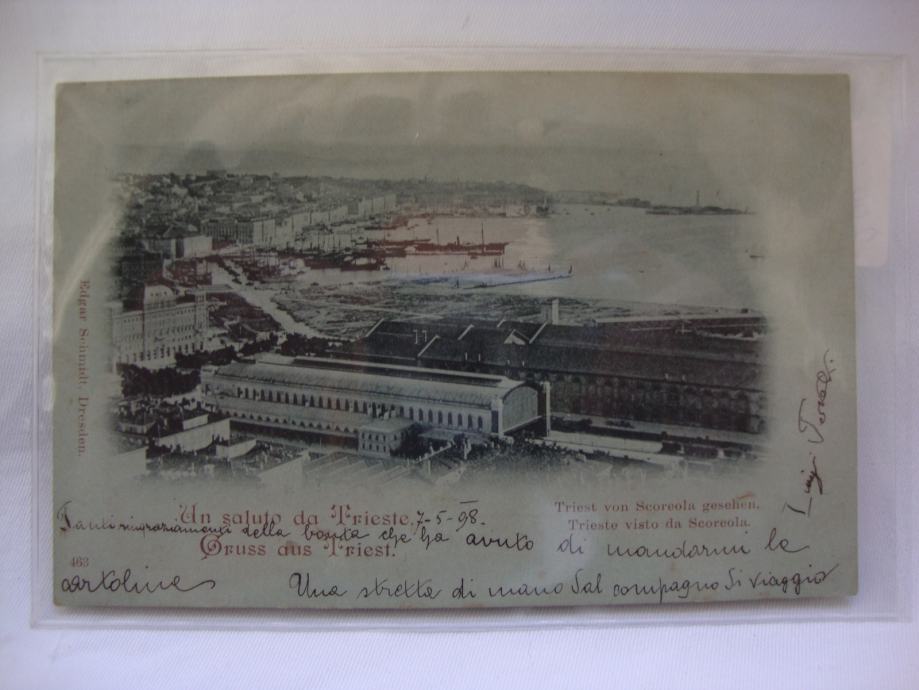 Edgar Schmidt, Dresden.
Un saluto da Trieste, 7-5-98.
Triest von Scoreola gesehen.
Trieste visto da Scoreola.
Tanti ringraziamenti della bontà che ha avuto di mandarmi le
Gruss aus Triest.
463
cartoline
Una stretta di mano dal compagno di viaggio
Luigi